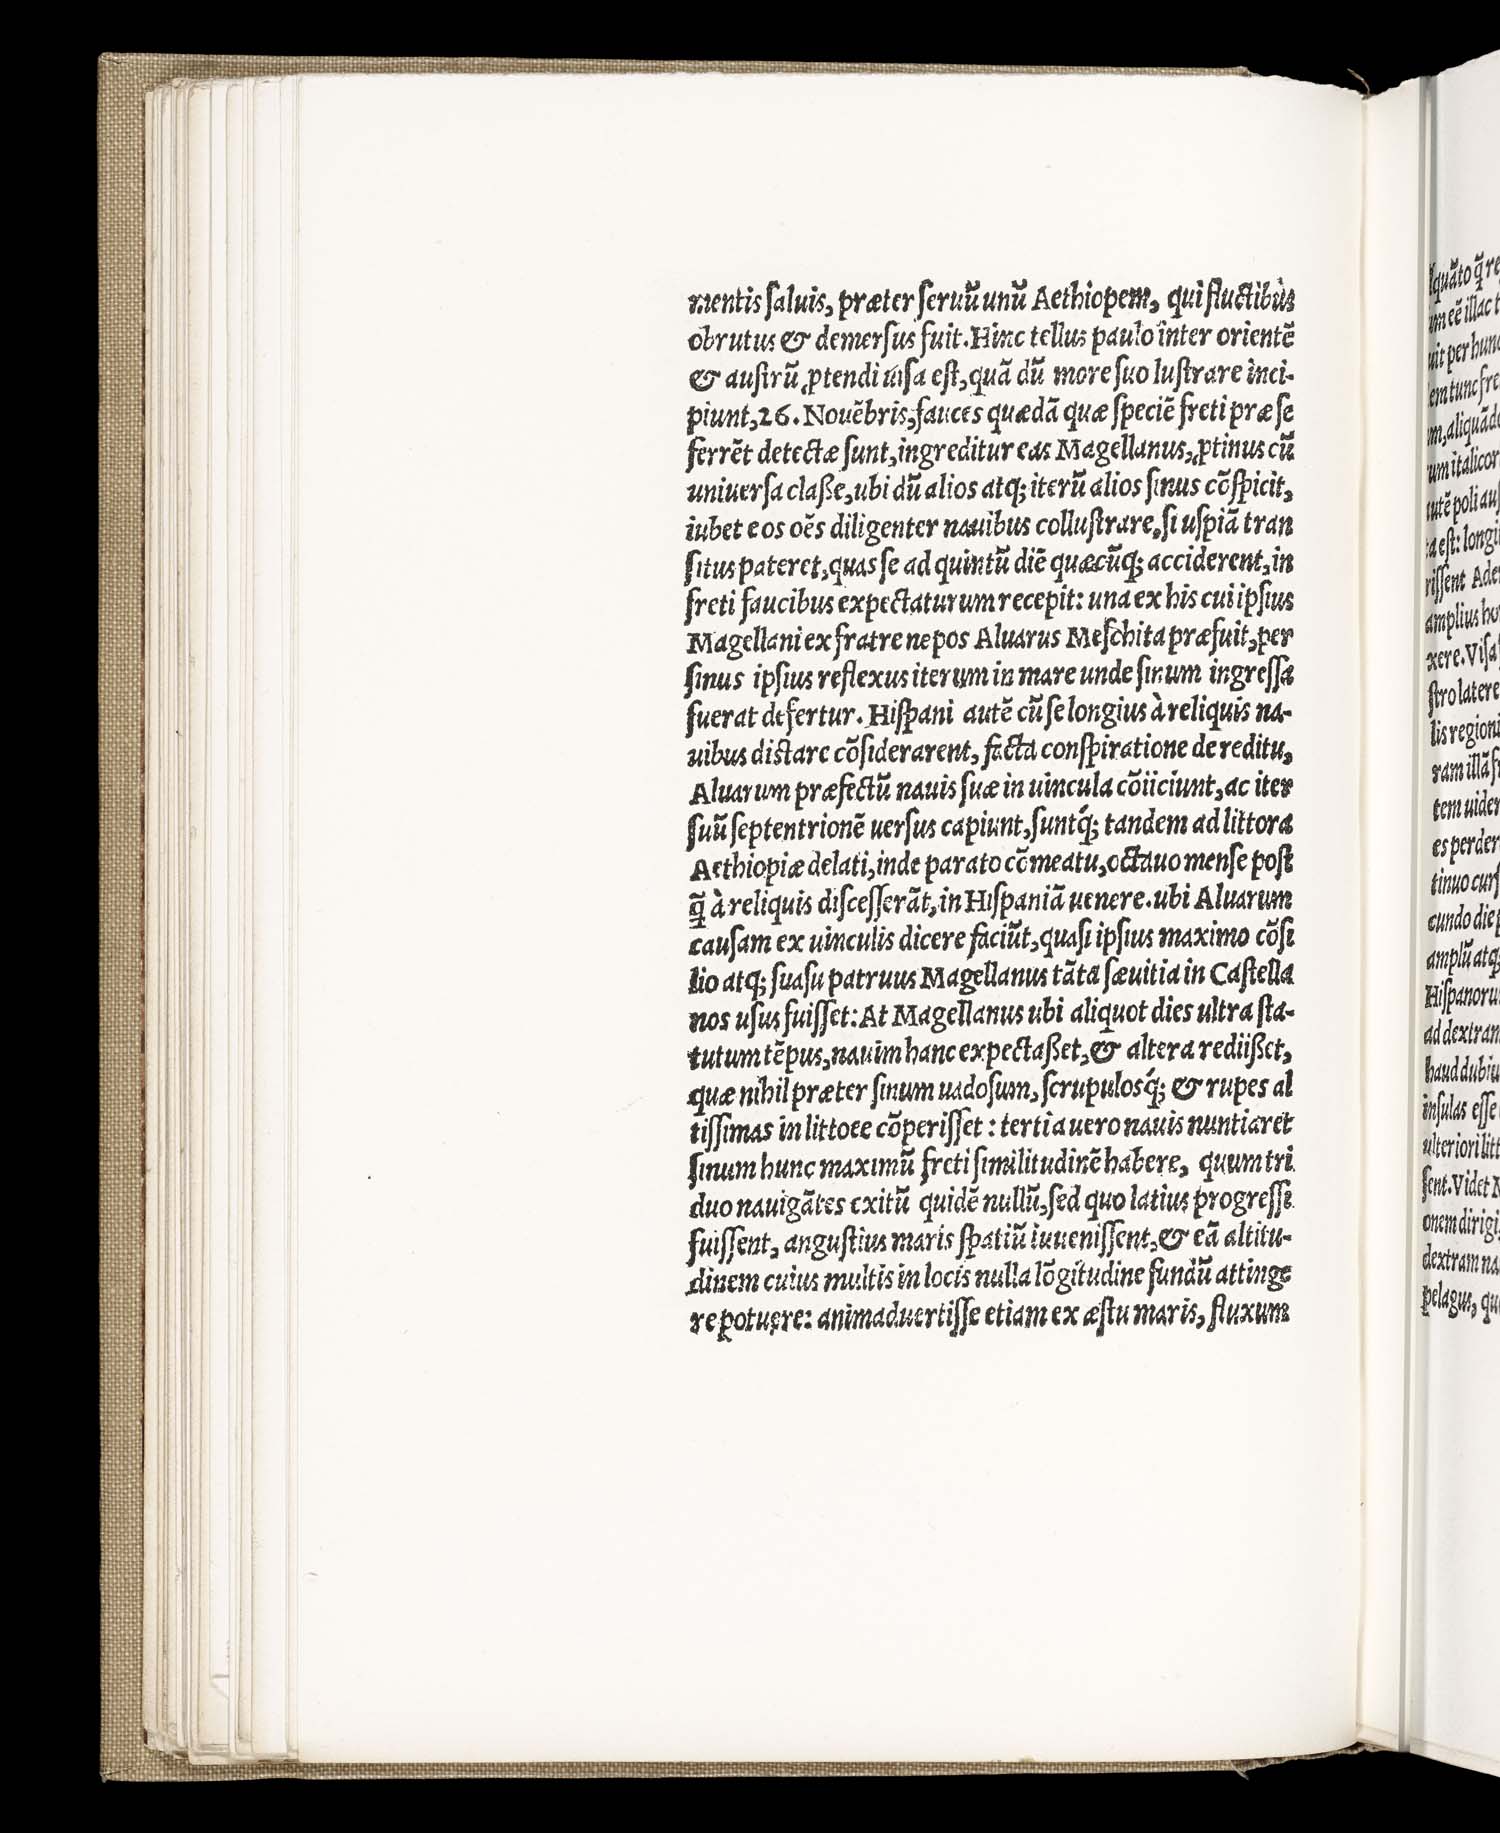 mentis ſaluis, præter ſeruũ unũ Aethiopem, qui fluctibùs
obrutus & demerſus fuit. Hinc tellus paulo inter orientẽ
& auſtrũ ꝓtendi uiſa eſt, quã dũ more ſuo luſtrare inci-
piunt, 26. Nouẽbris, fauces quædã quæ ſpeciẽ freti præ ſe
ferrẽt detectæ ſunt, ingreditur eas Magellanus, ꝓtinus cũ
uniuerſa claße, ubi dũ alios atq; iterũ alios ſinus cõſpicit,
iubet eos oẽs diligenter nauibus colluſtrare, ſi uſpiã tran
ſitus pateret, quas ſe ad quintũ diẽ quæcũq; acciderent, in
freti faucibus expectaturum recepit: una ex his cui ipſius
Magellani ex fratre nepos Aluarus Meſchita præfuit, per
ſinus ipſius reflexus iterum in mare unde ſinum ingreſſa
fuerat defertur. Hiſpani autẽ cũ ſe longius à reliquis na-
uibus diſtare cõſiderarent, facta conſpiratione de reditu,
Aluarum præfectũ nauis ſuæ in uincula cõiiciunt, ac iter
ſuũ ſeptentrionẽ uerſus capiunt, ſuntq́; tandem ad littora
Aethiopiæ delati, inde parato cõmeatu, octauo menſe poſt
q̃ à reliquis diſceſſerãt, in Hiſpaniã uenere. ubi Aluarum
cauſam ex uinculis dicere faciũt, quaſi ipſius maximo cõſi
lio atq; ſuaſu patruus Magellanus tãta ſæuitia in Caſtella
nos uſus fuiſſet: At Magellanus ubi aliquot dies ultra ſta-
tutum tẽpus, nauim hanc expectaßet, & altera rediißet,
quæ nihil præter ſinum uadoſum, ſcrupulosq́; & rupes al
tiſſimas in littoee cõperiſſet: tertia uero nauis nuntiaret
ſinum hunc maximũ freti ſimilitudinẽ habere, quum tri
duo nauigãtes exitũ quidẽ nullũ, ſed quo latius progreſſi
fuiſſent, anguſtius maris ſpatiũ iuueniſſent, & eã altitu-
dinem cuius multis in locis nulla lõgitudine fundũ attinge
re potuere: animaduertiſſe etiam ex æſtu maris, fluxum